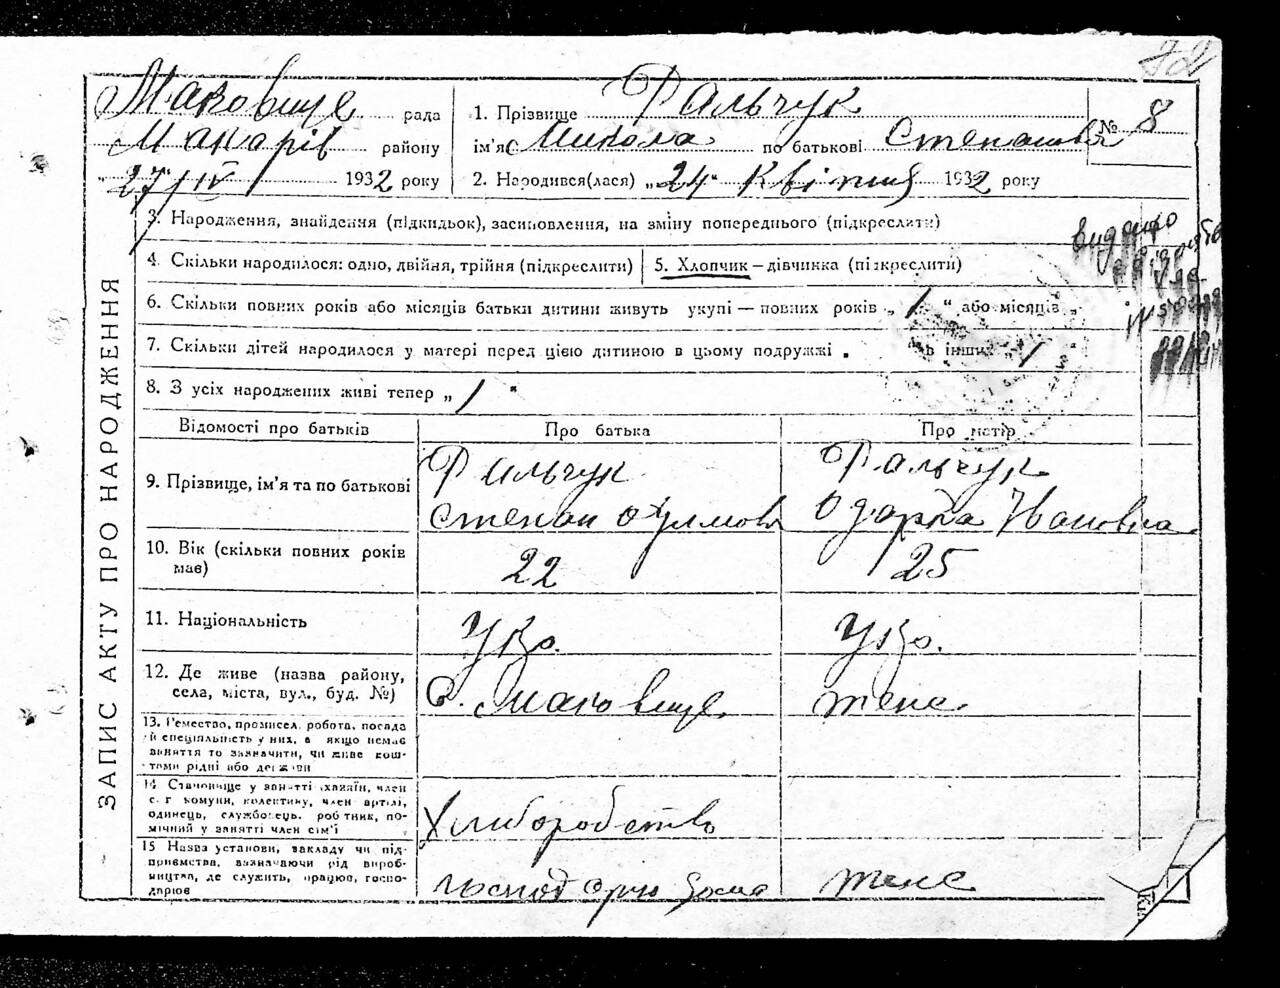 72
Маковище рада
Макарів району
27/IV 1932 року
1. Прізвище Фальчук
ім'я Микола по батькові Степанов
№ 8
2. Народився(лася) „24" Квітня 1932 року
ЗАПИС АКТУ ПРО НАРОДЖЕННЯ
3. Народження, знайдення (підкидьок), засиновлення, на зміну попереднього (підкреслити)
4. Скільки народилося: одно, двійня, трійня (підкреслити)
5. Хлопчик — дівчинка (підкреслити)
6. Скільки повних років або місяців батьки дитини живуть укупі — повних років „1" або місяців „
7. Скільки дітей народилося у матері перед цією дитиною в цьому подружжі . "ь інших „1
8. З усіх народжених живі тепер „1"
Відомості про батьків
Про батька
Про матір
9. Прізвище, ім'я та по батькові
Фальчук
Степан
Фальчук
Одарка Івановна
10. Вік (скільки повних років
має)
22
25
11. Національність
Укр.
Укр.
12. Де живе (назва району,
села, міста, вул., буд. №)
С. Маковище
теж
13. Ремество, промисел, робота, посада
й спеціяльність у них, а якщо немає
заняття то зазначити, чи живе кош-
тами рідні або держави
14 Становище у занятті (хазяїн, член
с. г комуни, колективу, член артілі,
одинець, службовець, робітник, по-
мічний у занятті член сім'ї
Хліборобство
15 Назва установи, закладу чи під-
приємства, зазначаючи рід вироб-
ництва, де служить, працює, госпо-
дарює
дома
теж